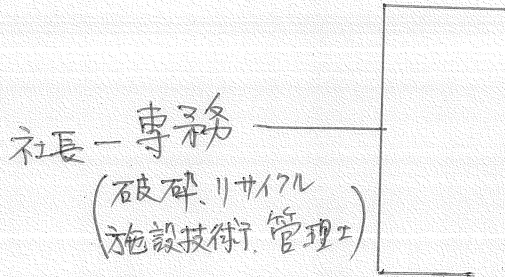 社長－専務
(破砕、リサイクル
施設技術、管理士)